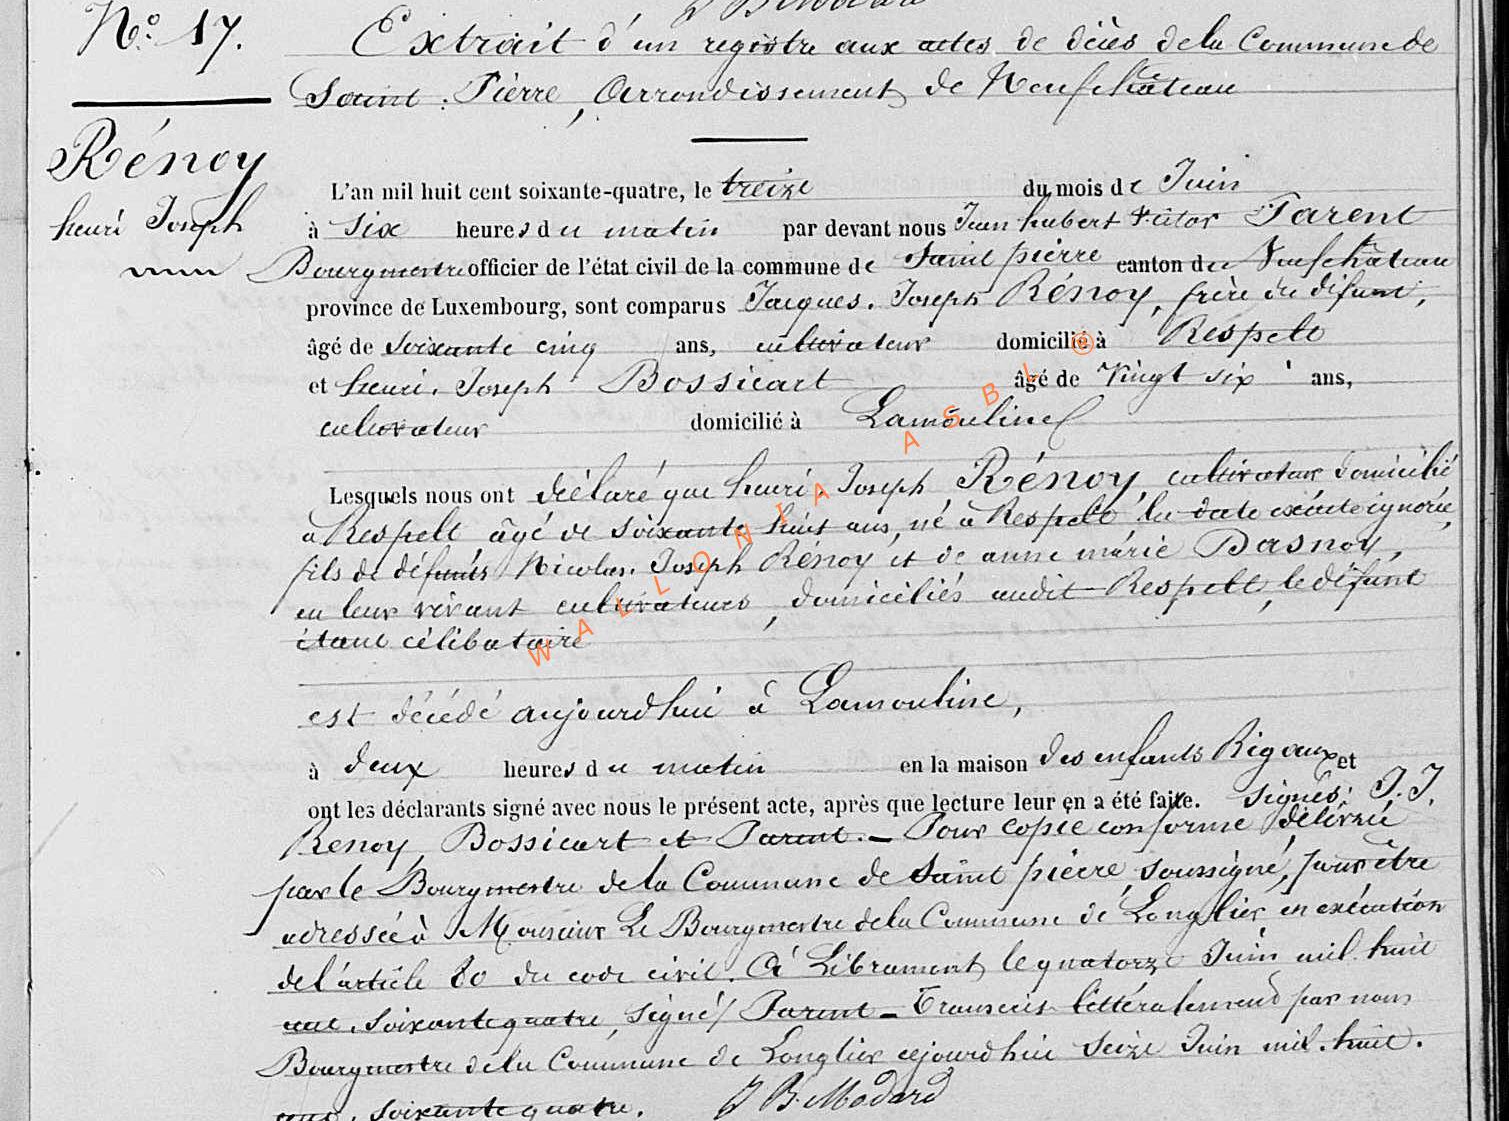 N.º 17.
Extrait d'un registre aux actes de décès de la Commune de
Saint-Pierre, Arrondissement de Neufchâteau
Rénoy
henri Joseph
L'an mil huit cent soixante-quatre, le treize du mois de Juin
à six heures du matin par devant nous Jean hubert Victor Parent
Bourgmestre officier de l'état civil de la commune de Saint pierre canton de Neufchâteau
province de Luxembourg, sont comparus Jacques Joseph Rénoy, frère du défunt,
âgé de soixante cinq ans, cultivateur domicilié à Respelt
et henri Joseph Bossicart âgé de vingt six ans,
cultivateur domicilié à Lamouline
Lesquels nous ont déclaré que henri Joseph Rénoy, cultivateur domicilié
à Respelt âgé de soixante huit ans, né à Respelt la date exacte ignorée,
fils de défunts Nicolas Joseph Rénoy et de anne marie Dasnoy,
en leur vivant cultivateurs, domiciliés audit Respelt, le défunt
étant célibataire
est décédé aujourd'hui à Lamouline,
à deux heures du matin en la maison des enfants Rigaux et
ont les déclarants signé avec nous le présent acte, après que lecture leur en a été faite. Signés: J. J.
Renoy, Bossicart et Parent. — Pour copie conforme délivrée
par le Bourgmestre de la Commune de Saint pierre soussigné, pour être
adressée à Monsieur Le Bourgmestre de la Commune de Longlier en exécution
de l'article 80 du code civil. A Libramont, le quatorze Juin mil huit
cent soixante quatre, signé/ Parent — Transcrit littéralement par nous
Bourgmestre de la Commune de Longlier cejourd'hui seize Juin mil huit
cent soixante quatre. J B. Modard
WALLONIA ASBL ®